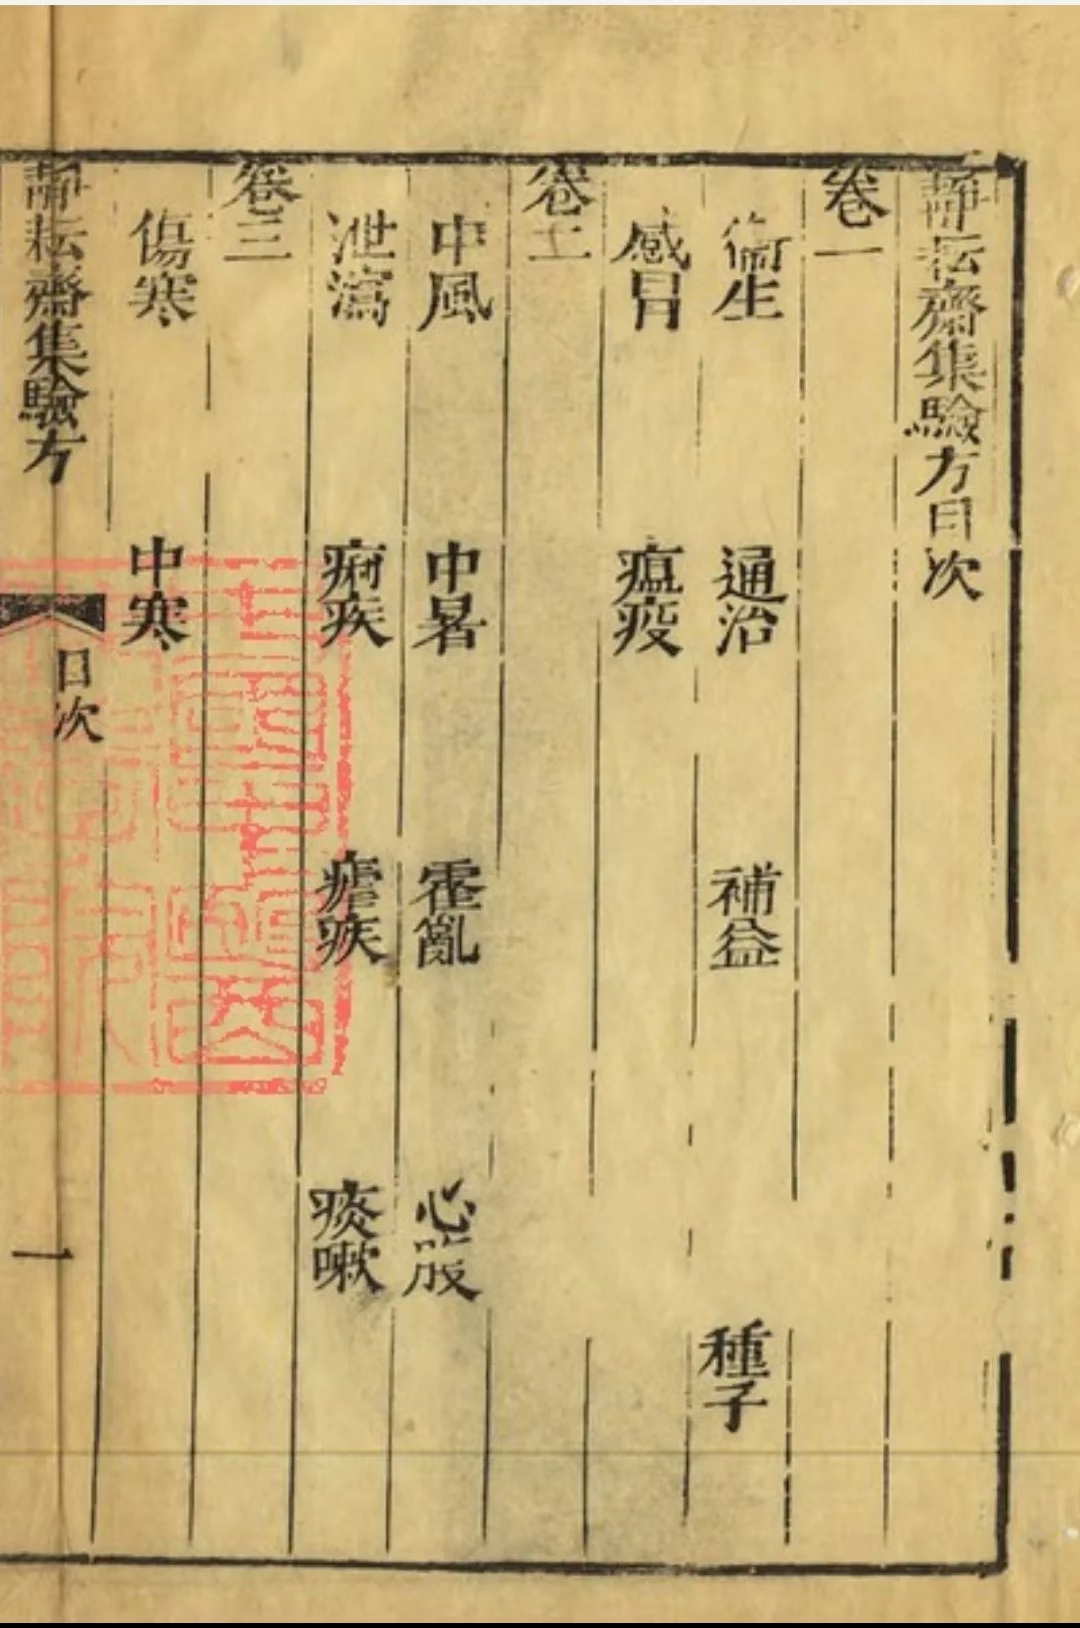 靜耘齋集驗方目次
卷一
衞生 通治 補益 種子
感冒 瘟疫
卷二
中風 中暑 霍亂 心腹
泄瀉 痢疾 瘧疾 痰嗽
卷三
傷寒 中寒
靜耘齋集驗方 目次 一